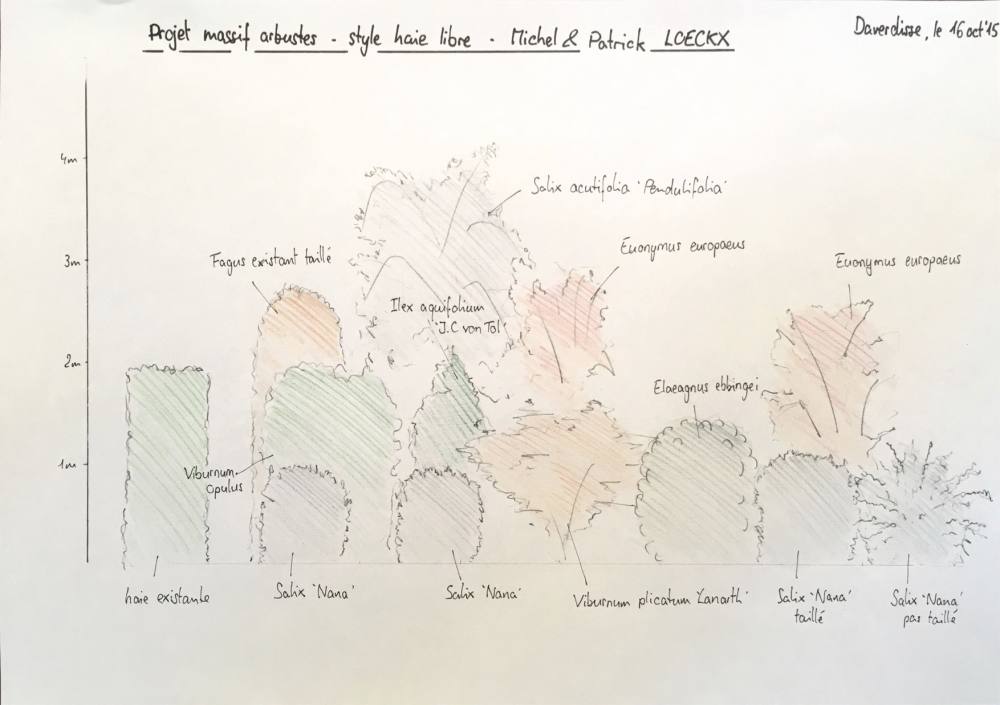 Projet massif arbustes - style haie libre - Michel & Patrick LOECKX
Daverdisse, le 16 oct '15
4m
Salix acutifolia 'Pendulifolia'
Euonymus europaeus
Fagus existant taillé
3m
Euonymus europaeus
Ilex aquifolium
'J.C von Tol'
2m
Elaeagnus ebbingei
1m
Viburnum
opulus
haie existante
Salix 'Nana'
Salix 'Nana'
Viburnum plicatum 'Lanarth'
Salix 'Nana'
taillé
Salix 'Nana'
pas taillé